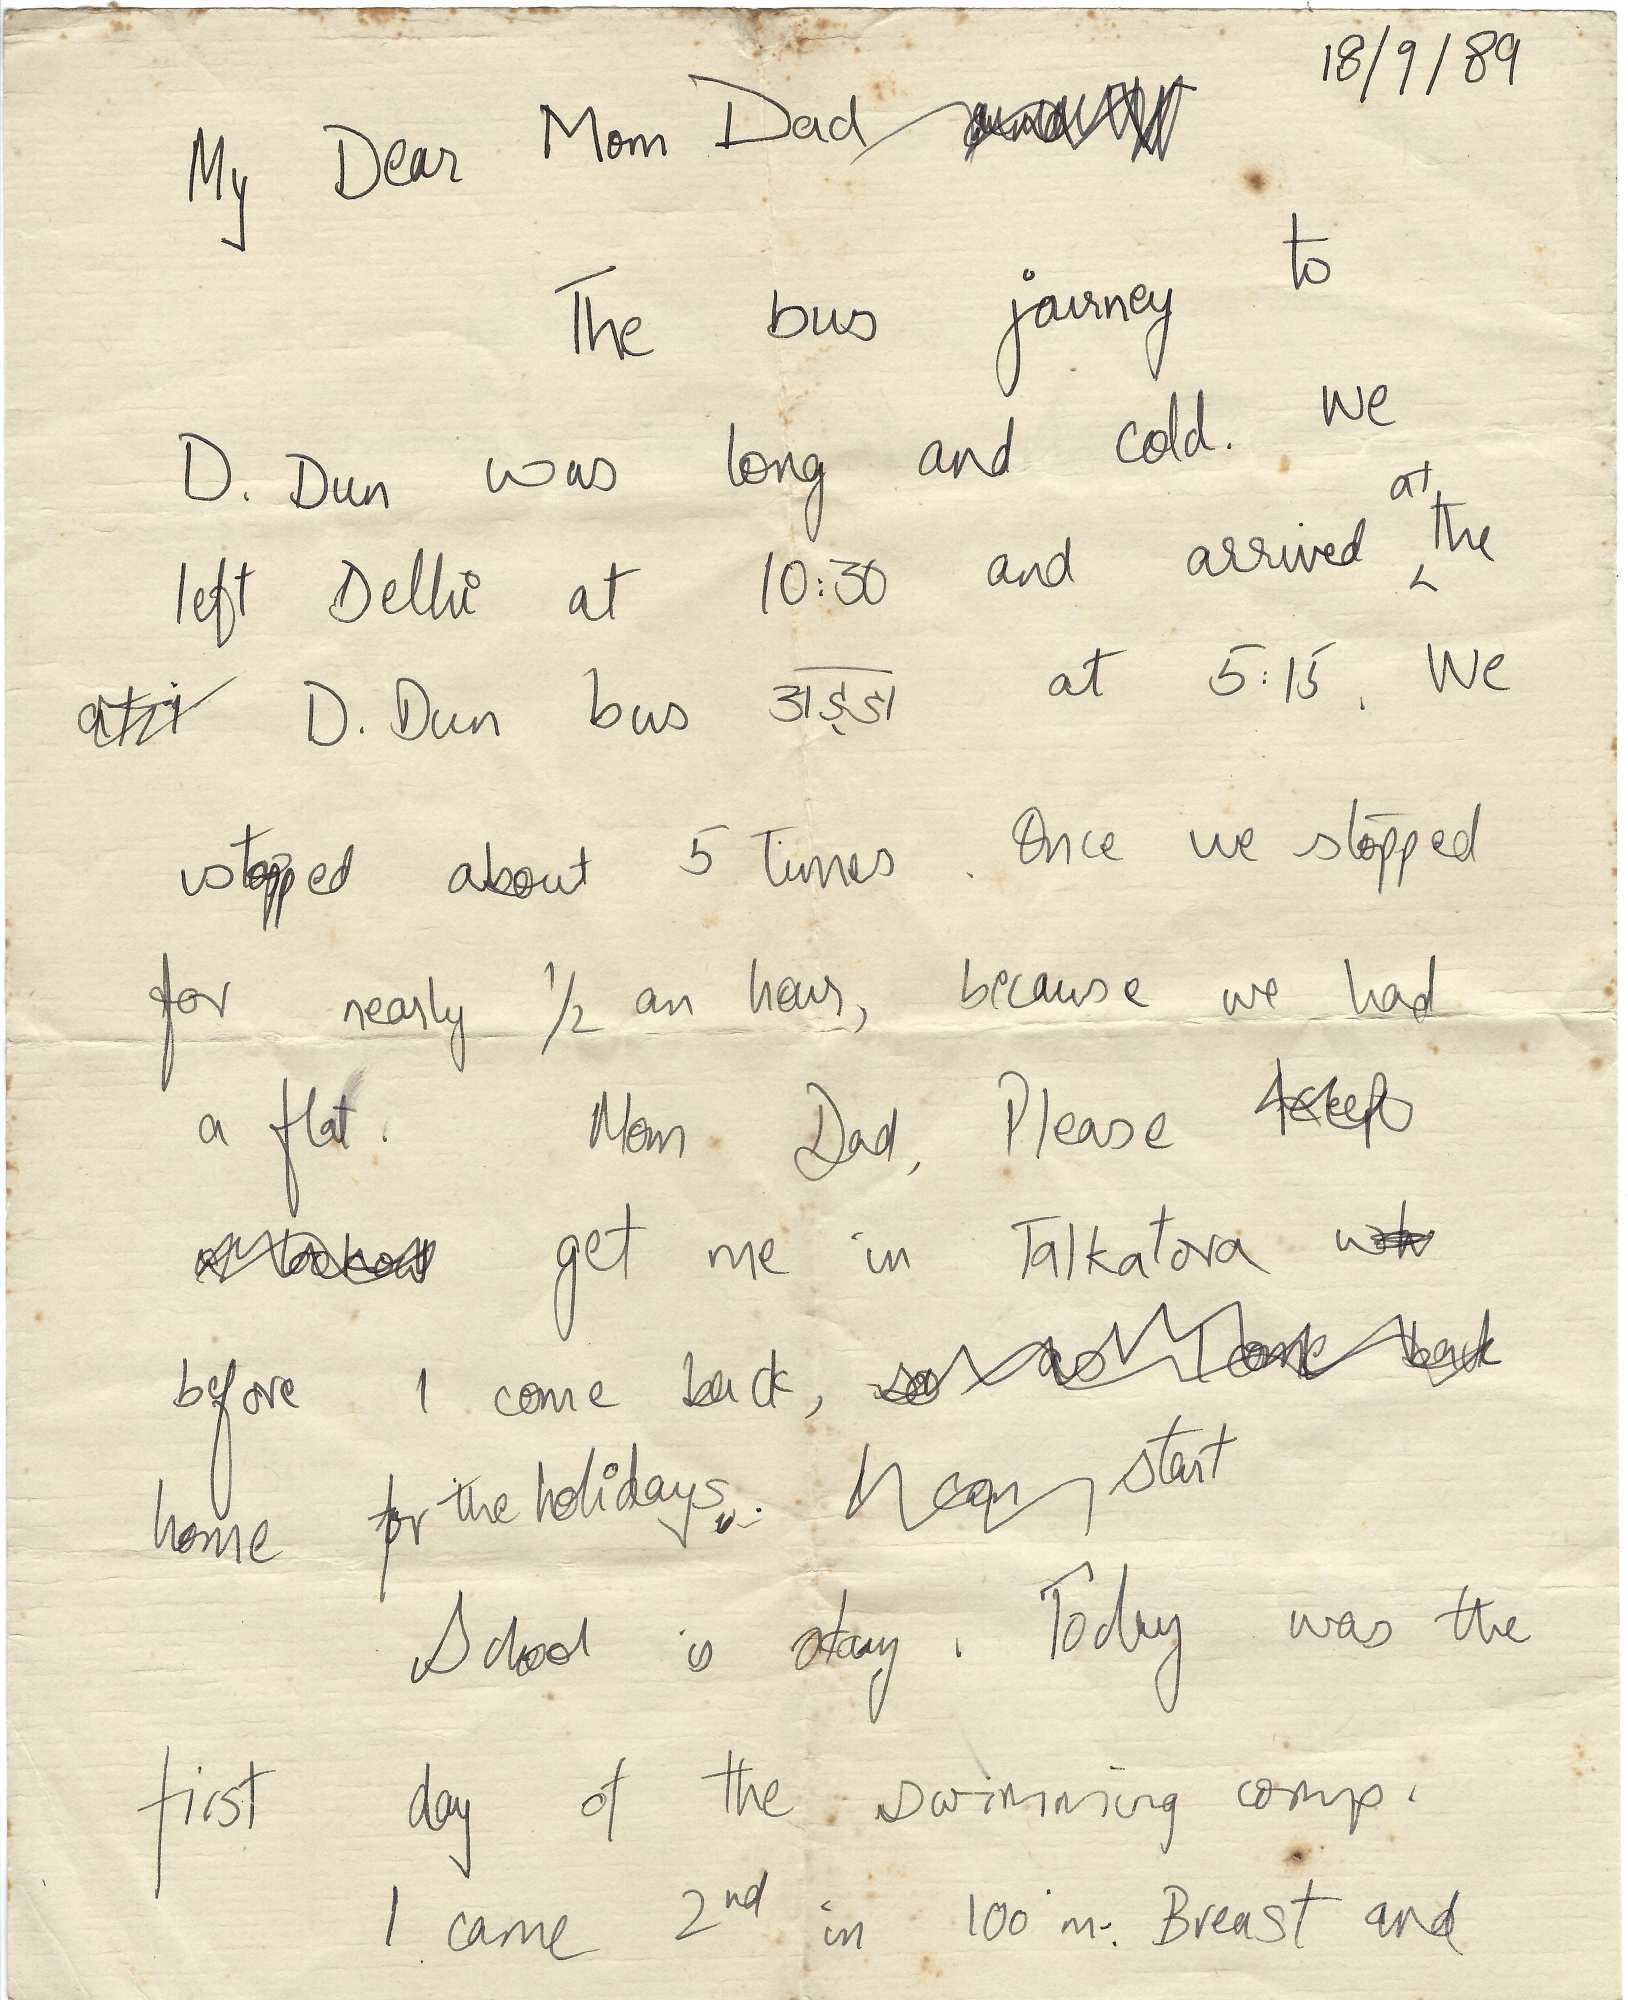 18/9/89
My Dear Mom Dad
The bus journey to
D. Dun was long and cold. We
left Delhi at 10:30 and arrived at the
D. Dun bus अड्डा at 5:15. We
stopped about 5 times. Once we stopped
for nearly 1/2 an hour, because we had
a flat. Mom Dad, Please
get me in Talkatora
before I come back,
home for the holidays. start
School is okay. Today was the
first day of the swimming comp.
I came 2nd in 100 m. Breast and